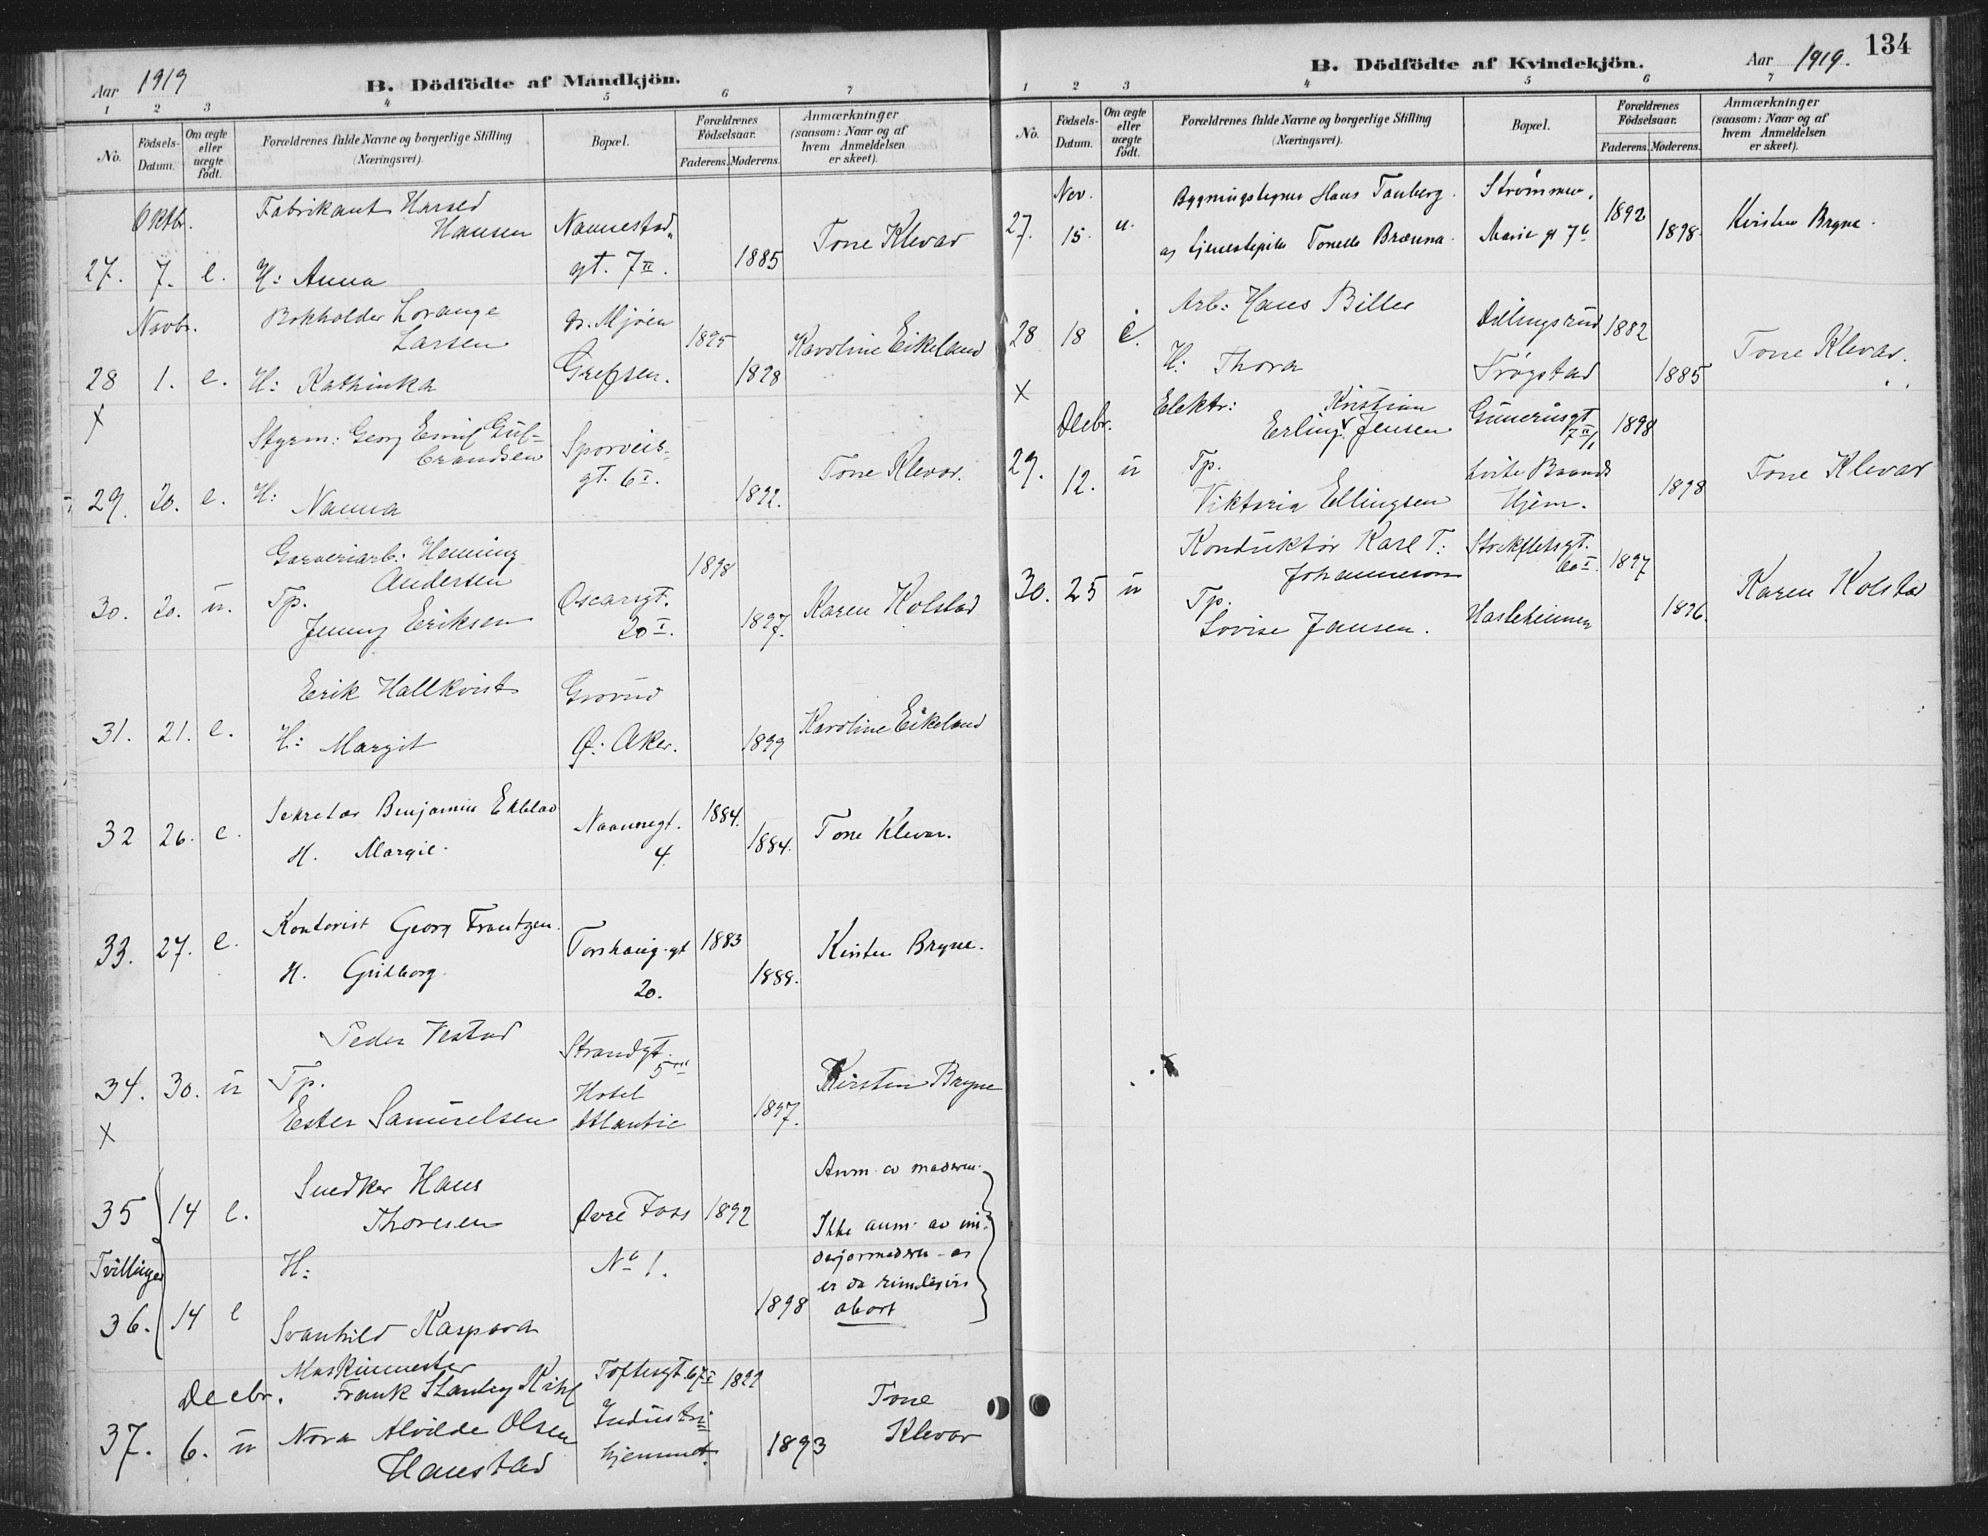 Aar 1919
B. Dödfödte af Mandkjön.
1 2 3 4 5 6 7
No.
Födsels-Datum.
Om ægte eller uægte født.
Forældrenes fulde Navne og borgerlige Stilling (Næringsvei).
Bopæl.
Forældrenes Födselsaar.
Faderens. Moderens.
Anmærkninger (saasom: Naar og af hvem Anmeldelsen er skeet).
Oktbr.
Fabrikant Harald
Hansen
Nannestad
27. 7. e. H: Anna gt. 7 II. 1885 Tone Klevar
Novbr.
Bokholder Lorange
Larsen
n. Mjøen
1895
Karoline Eikeland
28 1. e. H: Kathinka Grefsen. 1898
X
Styrm: Georg Emil Gul-
brandsen
Sporveis-
gt. 6 I.
29. 20. e. H: Nanna 1892. Tone Klevar.
Garveriarb: Henning
Andersen
1898
30. 20. u. Tp.
Jenny Eriksen
Oscarsgt.
20 I.
1897. Karen Kolstad
Erik Hallkvist Grorud
31. 21. e. H: Margit Ø: Aker. 1899 Karoline Eikeland
Sekretær Benjamin Ekblad
32 26. e. H. Margit. Nannnegt. 4. 1884. 1884. Tone Klevar.
Kontorist Georg Frantzen.
33. 27. e. H. Gudborg. Torshaug.gt 20. 1883 1888. Kirsten Bryne.
Peder Vestad
Strandgt.
34. 30. u Tp.
Ester Samuelsen
Hotel
Atlantic
1897. Kirsten Bryne
X
Snedker Hans
Thoresen
35 14 e. Øvre Foss 1892
Anm. av moderen.
Tvillinger
H: No 1.
Ikke anm. av
er da rimeligvis
abort
36. 14 e Svanhild Kaspara 1898
Decbr.
Maskinmester
Frank Stanley Kihl
Toftesgt. 67 I
37. 6. u Nora Alvilde Olsen
Hanstad
Industri-
hjemmet.
1893
Tone
Klevar
134
B. Dödfödte af Kvindekjön.
Aar 1919.
1 2 3 4 5 6 7
No.
Födsels-Datum.
Om ægte eller uægte födt.
Forældrenes fulde Navne og borgerlige Stilling (Næringsvei).
Bopæl.
Forældrenes Födselsaar.
Faderens. Moderens.
Anmærkninger (saasom: Naar og af hvem Anmeldelsen er skeet).
Nov.
27. 15. u. Bygningstegner Hans Tanberg. Strømmen, 1892
og tjenestepike Tonelle Brænna Marie gt 7 b 1898. Kirsten Bryne.
Arb: Hans Biller
28 18 e. Dillingsrud 1882
H: Thora Trøgstad 1885 Tone Klevar.
X
Decbr.
Elektr: Kristian
Erling Jensen
Gunerusgt
7 II/1
1898
29. 12. u Tp.
Viktoria Ellingsen
Hjem.
1898 Tone Klevar
Konduktør Karl T:
Johannesson
Stockfletsgt.
60 I.
1897
30. 25 u Tp.
Lovise Jansen.
Hasleheimen
1896. Karen Kolstad